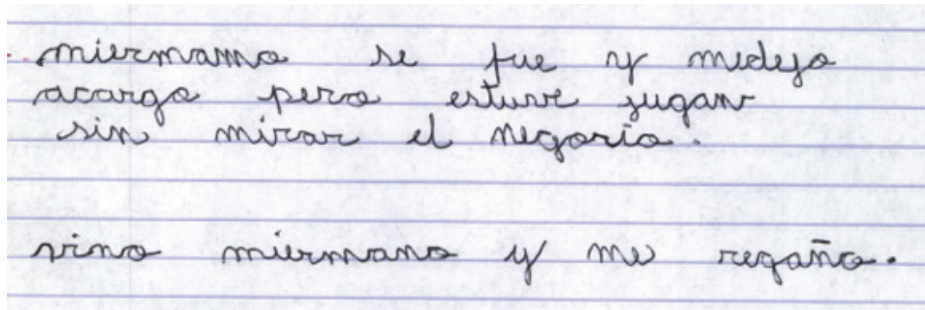 miermamo se fue y medejo
acargo pero estuve jugam
sin mirar el negorio.
vino miermano y me regaño.